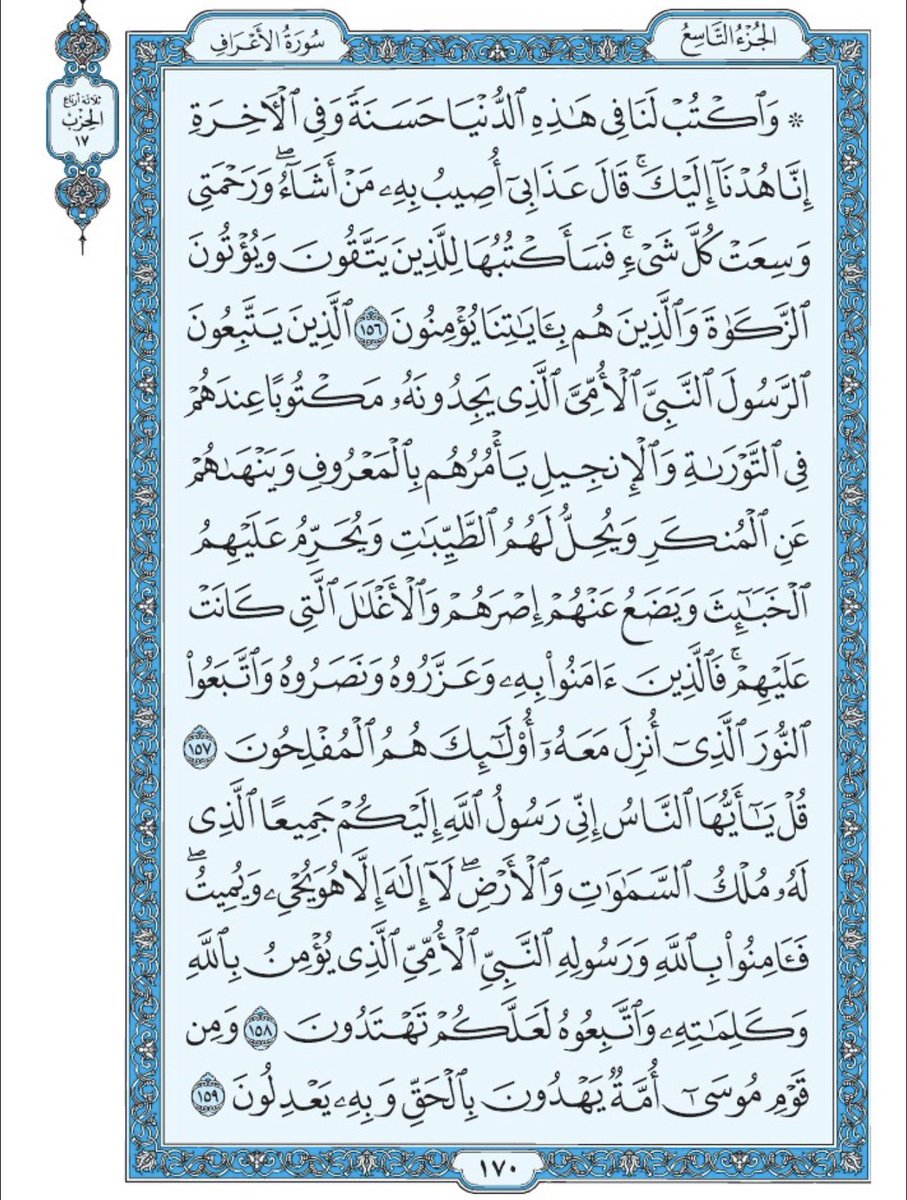 الجُزْءُ التَّاسِعُ
سُورَةُ الأَعْرَافِ
ثلاثة أرباع
الحِزْب
١٧
۞ وَٱكۡتُبۡ لَنَا فِي هَٰذِهِ ٱلدُّنۡيَا حَسَنَةٗ وَفِي ٱلۡأٓخِرَةِ
إِنَّا هُدۡنَآ إِلَيۡكَۚ قَالَ عَذَابِيٓ أُصِيبُ بِهِۦ مَنۡ أَشَآءُۖ وَرَحۡمَتِي
وَسِعَتۡ كُلَّ شَيۡءٖۚ فَسَأَكۡتُبُهَا لِلَّذِينَ يَتَّقُونَ وَيُؤۡتُونَ
ٱلزَّكَوٰةَ وَٱلَّذِينَ هُم بِـَٔايَٰتِنَا يُؤۡمِنُونَ ١٥٦ ٱلَّذِينَ يَتَّبِعُونَ
ٱلرَّسُولَ ٱلنَّبِيَّ ٱلۡأُمِّيَّ ٱلَّذِي يَجِدُونَهُۥ مَكۡتُوبًا عِندَهُمۡ
فِي ٱلتَّوۡرَىٰةِ وَٱلۡإِنجِيلِ يَأۡمُرُهُم بِٱلۡمَعۡرُوفِ وَيَنۡهَىٰهُمۡ
عَنِ ٱلۡمُنكَرِ وَيُحِلُّ لَهُمُ ٱلطَّيِّبَٰتِ وَيُحَرِّمُ عَلَيۡهِمُ
ٱلۡخَبَٰٓئِثَ وَيَضَعُ عَنۡهُمۡ إِصۡرَهُمۡ وَٱلۡأَغۡلَٰلَ ٱلَّتِي كَانَتۡ
عَلَيۡهِمۡۚ فَٱلَّذِينَ ءَامَنُواْ بِهِۦ وَعَزَّرُوهُ وَنَصَرُوهُ وَٱتَّبَعُواْ
ٱلنُّورَ ٱلَّذِيٓ أُنزِلَ مَعَهُۥٓ أُوْلَٰٓئِكَ هُمُ ٱلۡمُفۡلِحُونَ ١٥٧
قُلۡ يَٰٓأَيُّهَا ٱلنَّاسُ إِنِّي رَسُولُ ٱللَّهِ إِلَيۡكُمۡ جَمِيعًا ٱلَّذِي
لَهُۥ مُلۡكُ ٱلسَّمَٰوَٰتِ وَٱلۡأَرۡضِۖ لَآ إِلَٰهَ إِلَّا هُوَ يُحۡيِۦ وَيُمِيتُۖ
فَـَٔامِنُواْ بِٱللَّهِ وَرَسُولِهِ ٱلنَّبِيِّ ٱلۡأُمِّيِّ ٱلَّذِي يُؤۡمِنُ بِٱللَّهِ
وَكَلِمَٰتِهِۦ وَٱتَّبِعُوهُ لَعَلَّكُمۡ تَهۡتَدُونَ ١٥٨ وَمِن
قَوۡمِ مُوسَىٰٓ أُمَّةٞ يَهۡدُونَ بِٱلۡحَقِّ وَبِهِۦ يَعۡدِلُونَ ١٥٩
١٧٠